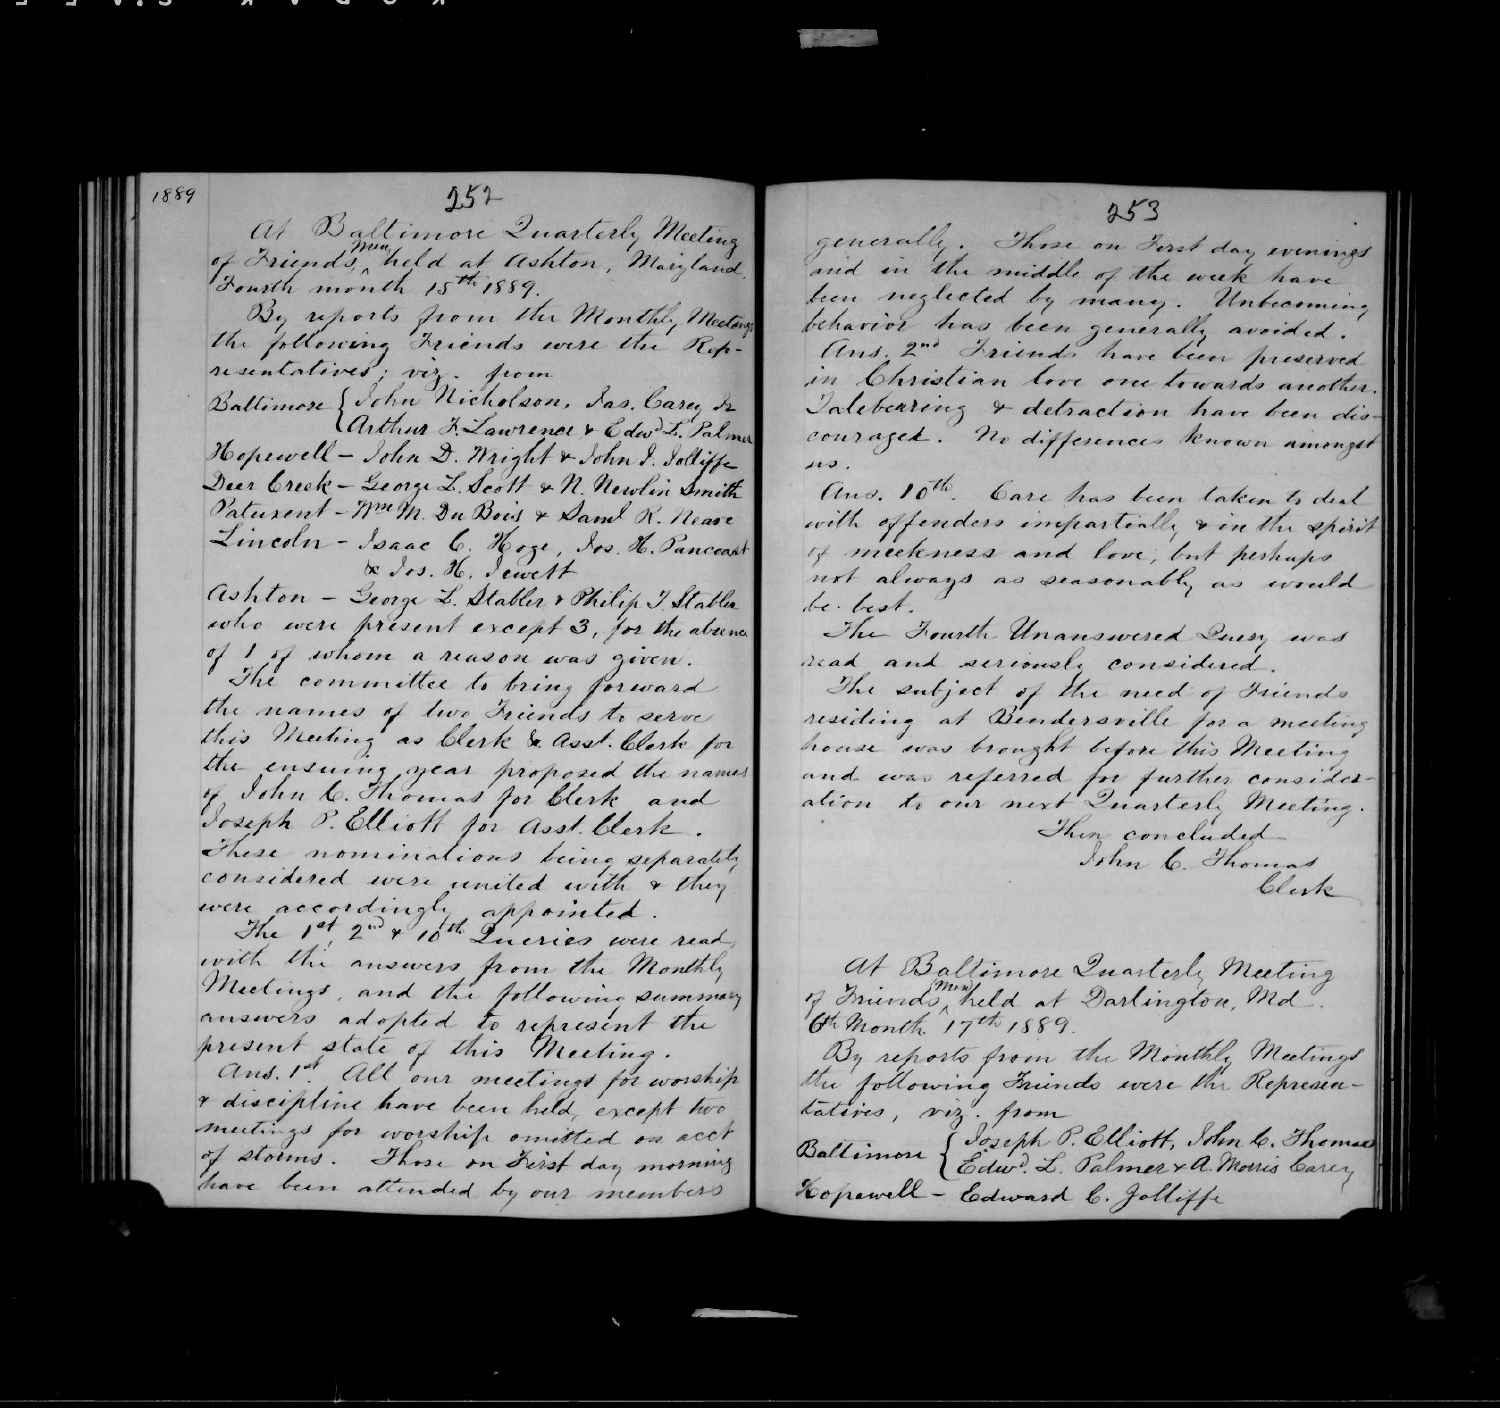 1889
252
At Baltimore Quarterly Meeting
of Friends, Men, held at Ashton, Maryland,
Fourth month 15th 1889.
By reports from the Monthly Meetings
the following Friends were the Rep-
resentatives; viz. from
Baltimore { John Nicholson, Jas. Carey Jr
Arthur F. Lawrence & Edwd L. Palmer
Hopewell – John D. Wright & John I. Jolliffe
Deer Creek – George L. Scott & N. Newlin Smith
Patuxent – Wm M. Du Bois & Saml R. Neave
Lincoln – Isaac C. Hoge, Jos. H. Pancoast
& Jos. H. Jewett
Ashton – George L. Stabler & Philip T. Stabler
who were present except 3, for the absence
of 1 of whom a reason was given.
The committee to bring forward
the names of two Friends to serve
this Meeting as Clerk & Asst. Clerk for
the ensuing year proposed the names
of John C. Thomas for Clerk and
Joseph P. Elliott for Asst. Clerk.
These nominations being separately
considered were united with & they
were accordingly appointed.
The 1st, 2nd & 10th Queries were read,
with the answers from the Monthly
Meetings, and the following summary
answers adopted to represent the
present state of this Meeting.
Ans. 1st. All our meetings for worship
& discipline have been held, except two
meetings for worship omitted on acct
of storms. Those on First day morning
have been attended by our members
253
generally. Those on First day evenings
and in the middle of the week have
been neglected by many. Unbecoming
behavior has been generally avoided.
Ans. 2nd Friends have been preserved
in Christian love one towards another.
Talebearing & detraction have been dis-
couraged. No differences known amongst
us.
Ans. 10th. Care has been taken to deal
with offenders impartially & in the spirit
of meekness and love, but perhaps
not always as seasonably as would
be best.
The Fourth Unanswered Query was
read and seriously considered.
The subject of the need of Friends
residing at Bendersville for a meeting
house was brought before this Meeting
and was referred for further consider-
ation to our next Quarterly Meeting.
Then concluded
John C. Thomas
Clerk
At Baltimore Quarterly Meeting
of Friends, Men, held at Darlington, Md.
6th Month 17th 1889.
By reports from the Monthly Meetings
the following Friends were the Represen-
tatives, viz. from
Baltimore { Joseph P. Elliott, John C. Thomas
Edwd. L. Palmer & A. Morris Carey
Hopewell – Edward C. Jolliffe